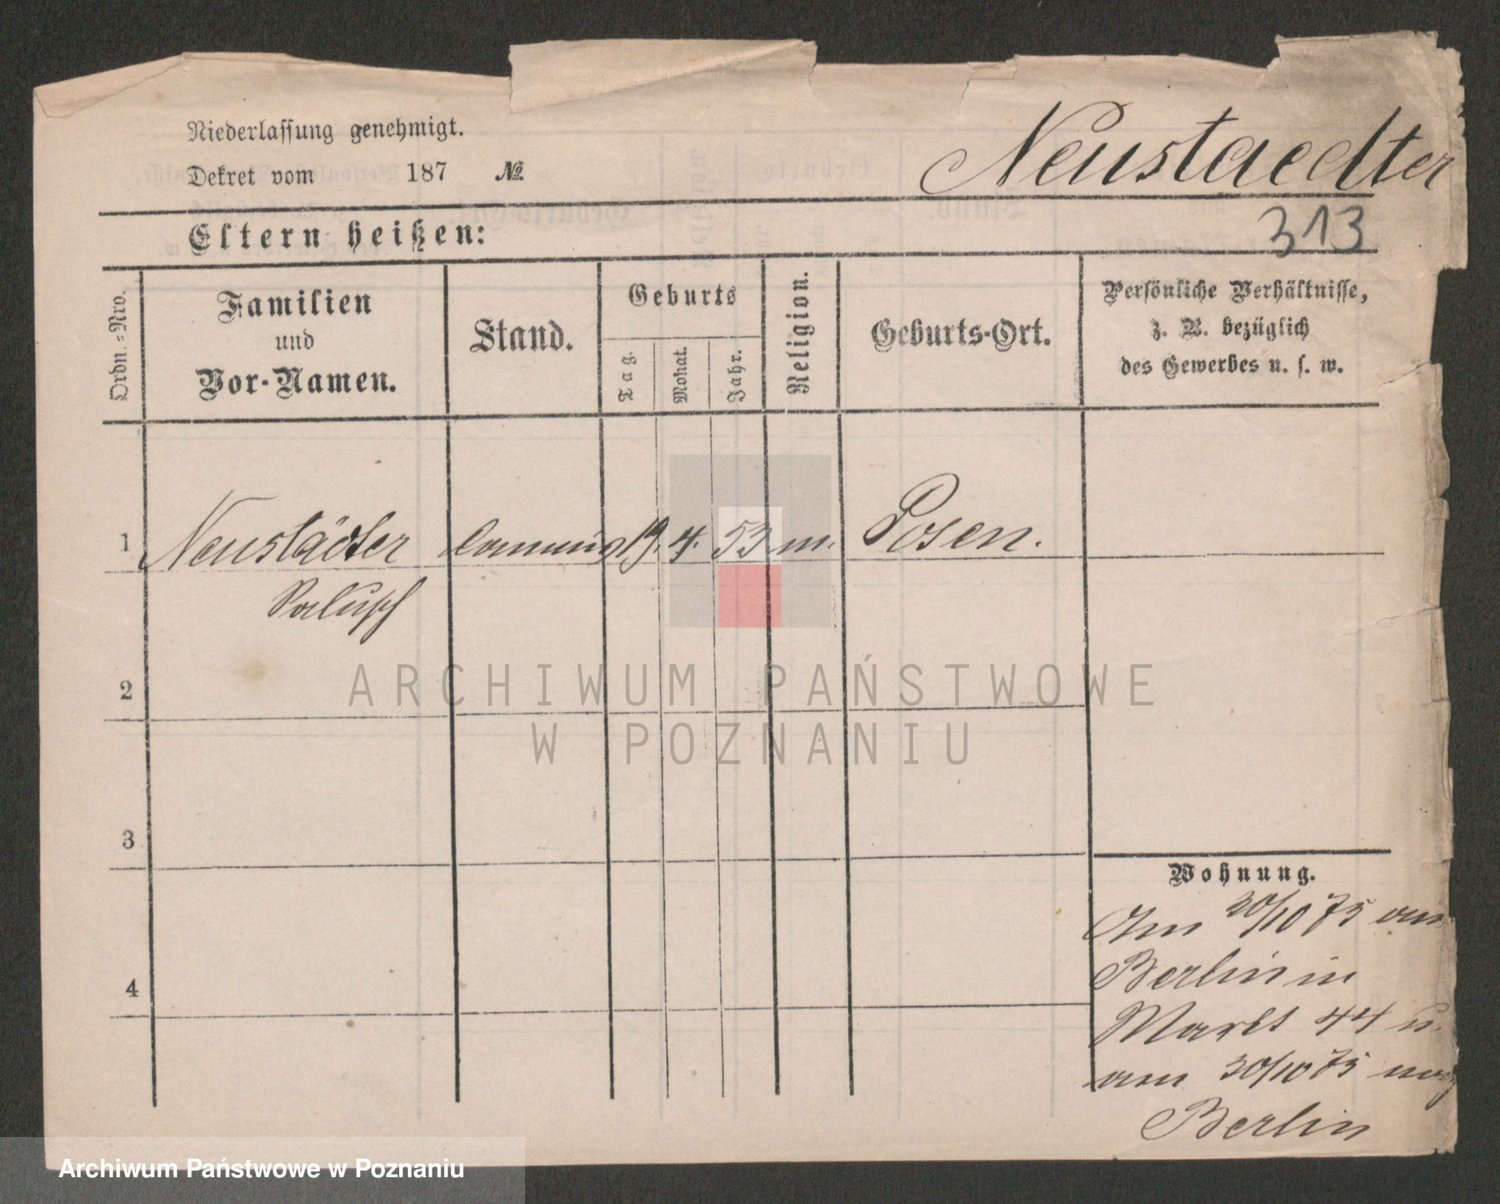 Niederlassung genehmigt.
Dekret vom 187 №
Neustaedter
313
Eltern heißen:
Ordn.-Nro.
Familien
und
Vor-Namen.
Stand.
Geburts
Tag.
Monat.
Jahr.
Religion.
Geburts-Ort.
Persönliche Verhältnisse,
z. B. bezüglich
des Gewerbes u. s. w.
1 Neustädter 19. 4. 53 m. Posen.
2
3
4
Wohnung.
Am 20/10 75
Berlin in
Markt 44 u.
am 30/10 75
Berlin
ARCHIWUM PAŃSTWOWE
W POZNANIU
Archiwum Państwowe w Poznaniu